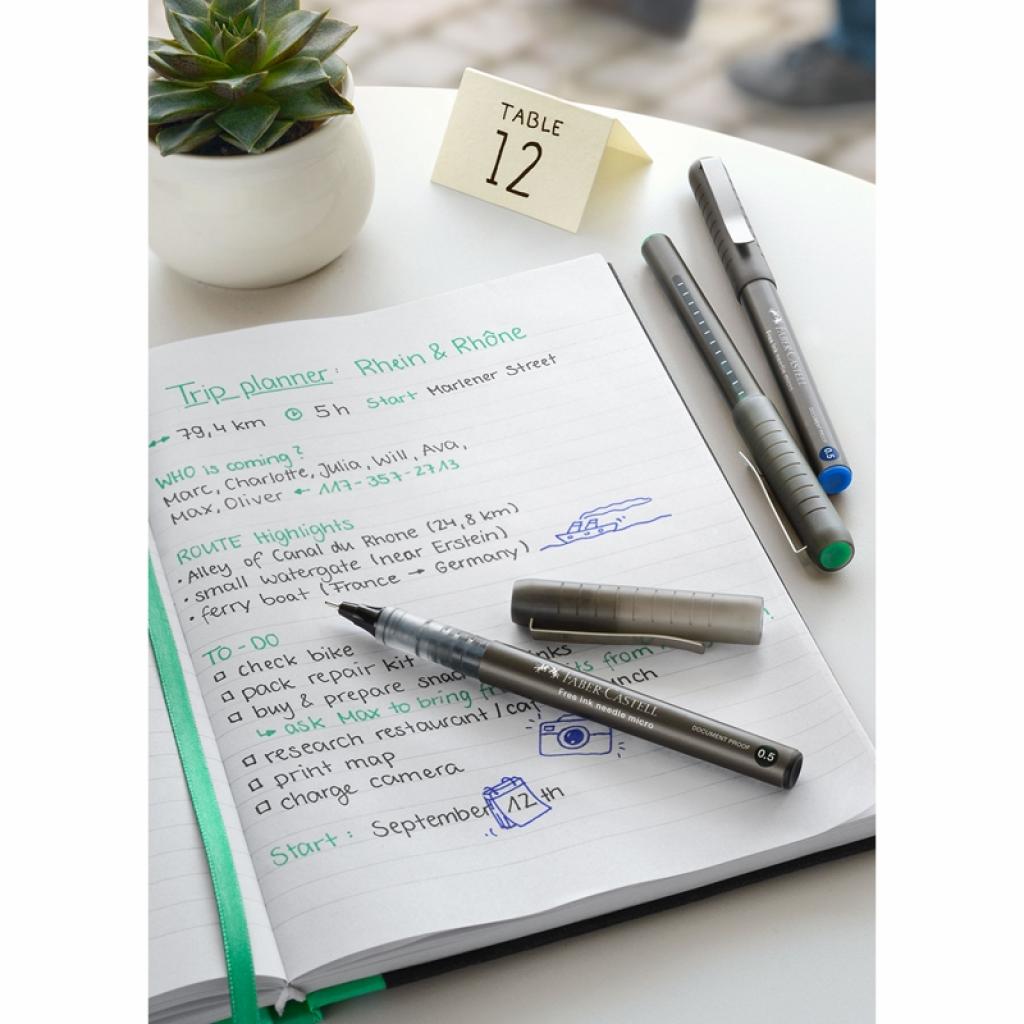 TABLE
12
Trip planner: Rhein & Rhône
79,4 km 5h Start Marlener Street
WHO is coming?
Marc, Charlotte, Julia, Will, Ava,
Max, Oliver ← 117-357-2713
ROUTE Highlights
• Alley of Canal du Rhone (24,8 km)
• small watergate (near Erstein)
• ferry boat (France → Germany)
TO-DO
check bike
pack repair kit
buy & prepare
ask Max to bring
research restaurant /
print map
charge camera
Start: September 12th
FABER-CASTELL
Free ink needle micro
DOCUMENT PROOF
0.5
FABER-CASTELL
Free ink needle micro
DOCUMENT PROOF
0.5